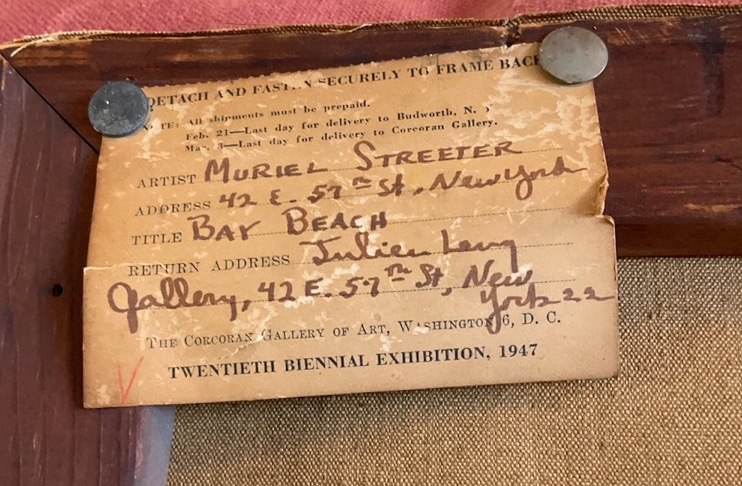 DETACH AND FASTEN SECURELY TO FRAME BACK
NOTE: All shipments must be prepaid.
Feb. 21—Last day for delivery to Budworth, N. Y
Mar. 3—Last day for delivery to Corcoran Gallery.
ARTIST MURIEL STREETER
ADDRESS 42 E. 57th St., New York
TITLE BAY BEACH
RETURN ADDRESS Julien Levy
Gallery, 42 E. 57th St, New
York 22
THE CORCORAN GALLERY OF ART, WASHINGTON 6, D. C.
TWENTIETH BIENNIAL EXHIBITION, 1947